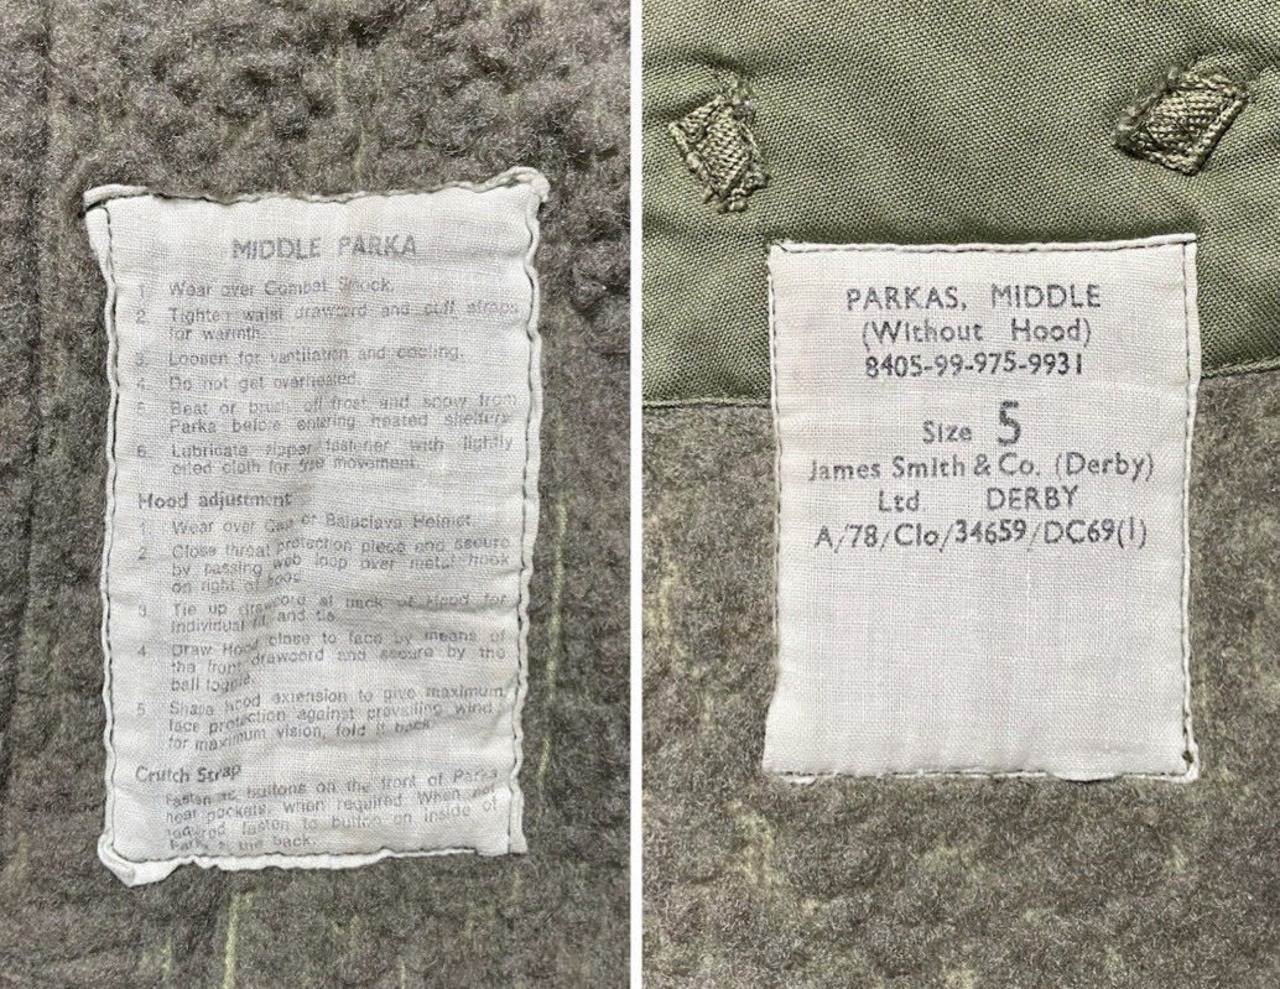 MIDDLE PARKA
1. Wear over Combat Smock.
2. Tighten waist drawcord and cuff straps
for warmth.
3. Loosen for ventilation and cooling.
4. Do not get overheated.
5. Beat or brush off frost and snow from
Parka before entering heated shelters.
6. Lubricate zipper fastener with lightly
oiled cloth for free movement.
Hood adjustment
1. Wear over Cap or Balaclava Helmet
2. Close throat protection piece and secure
by passing web loop over metal hook
on right of hood
3. Tie up drawcord at back of Hood for
individual fit and tie
4. Draw Hood close to face by means of
the front drawcord and secure by the
ball toggle.
5. Shape hood extension to give maximum
face protection against prevailing wind,
for maximum vision, fold it back
Crutch Strap
Fasten to buttons on the front of Parka
near pockets, when required When not
required, fasten to button on inside of
Parka at the back.
PARKAS, MIDDLE
(Without Hood)
8405-99-975-9931
Size 5
James Smith & Co. (Derby)
Ltd. DERBY
A/78/Clo/34659/DC69(1)